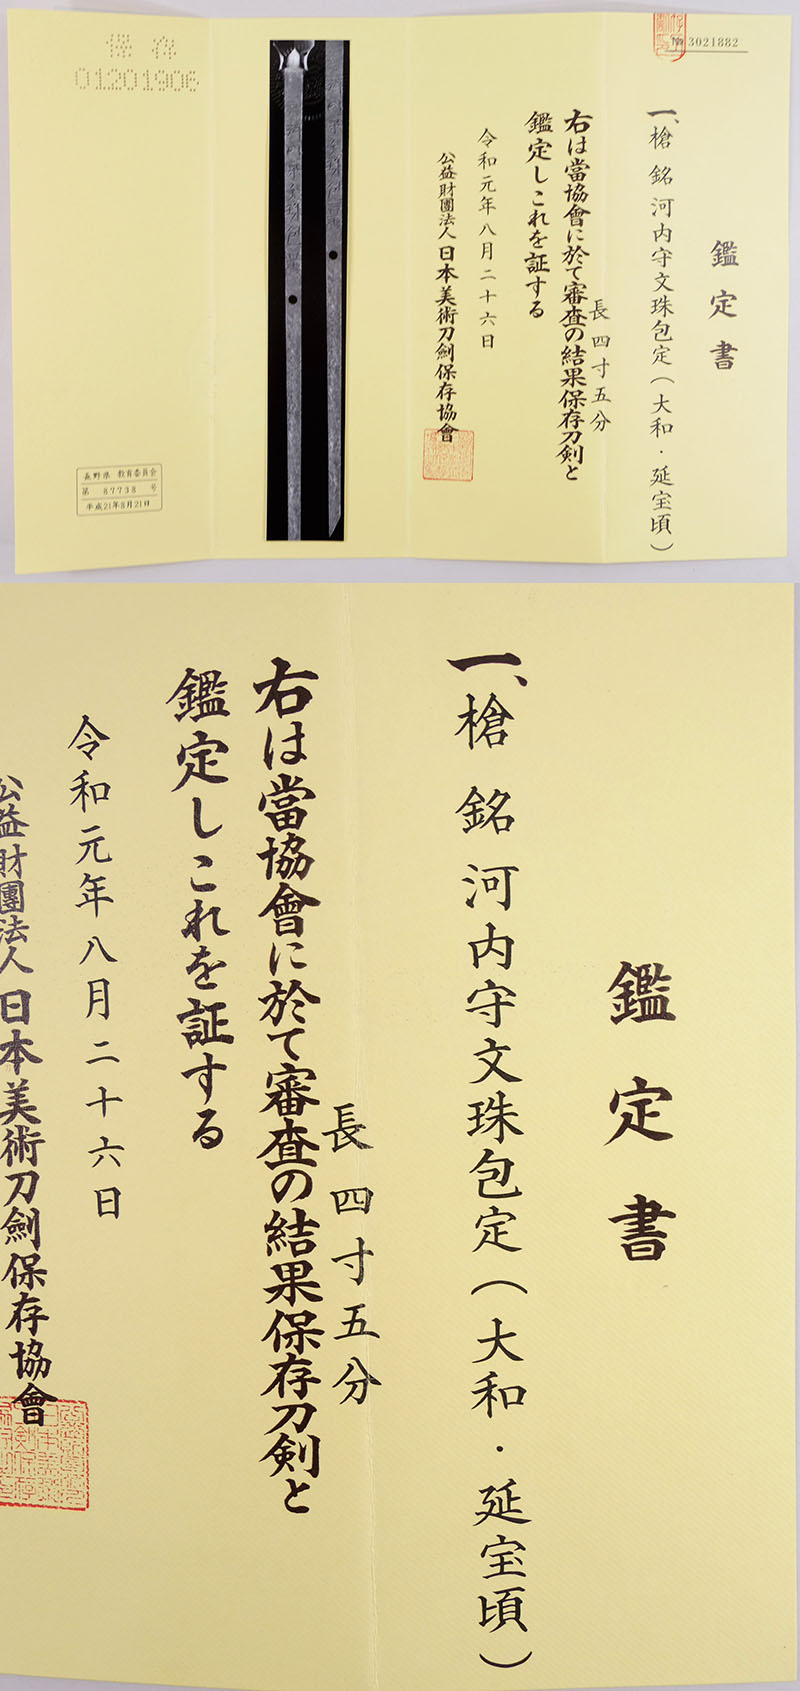 3021882
鑑定書
一、槍 銘 河内守文珠包定(大和・延宝頃)
長四寸五分
右は當協會に於て審査の結果保存刀剣と
鑑定しこれを証する
令和元年八月二十六日
公益財團法人 日本美術刀劍保存協會
保存
01201906
長野県 教育委員会
第 87738 号
平成21年8月21日
鑑定書
一、槍 銘 河内守文珠包定(大和・延宝頃)
長四寸五分
右は當協會に於て審査の結果保存刀剣と
鑑定しこれを証する
令和元年八月二十六日
公益財團法人 日本美術刀劍保存協會